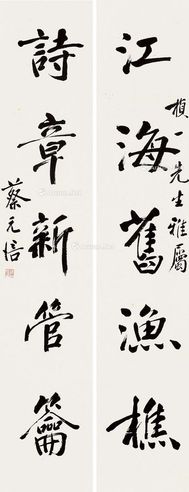 江海舊漁樵
楨一先生雅屬
詩章新管籥
蔡元培